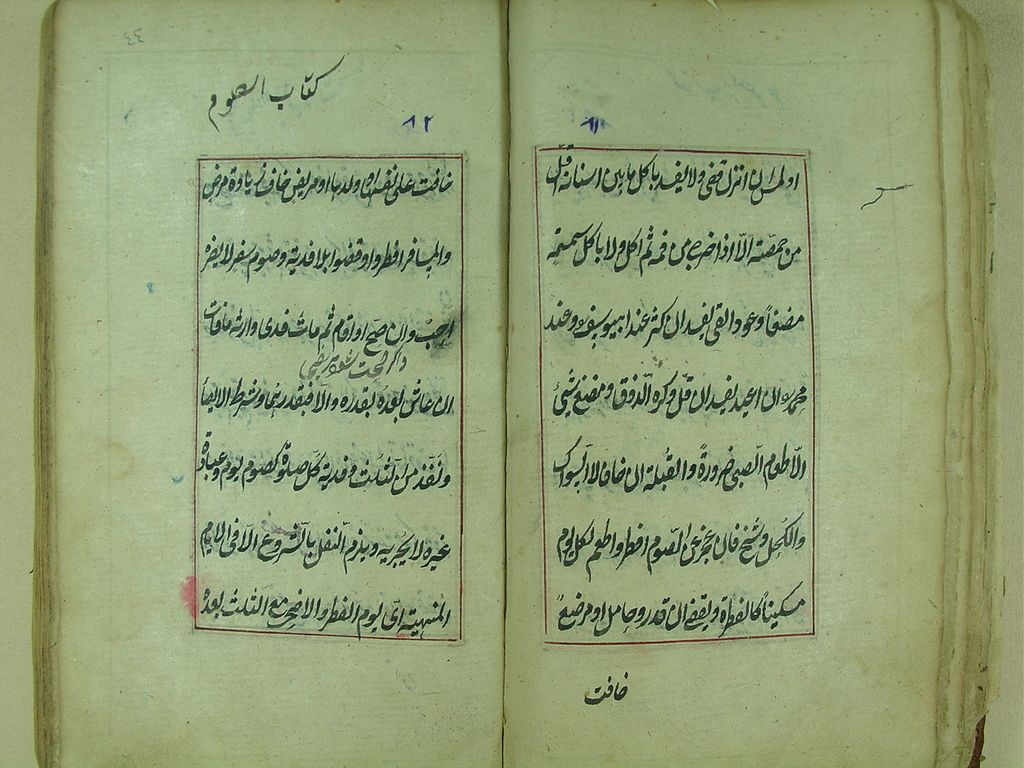 ٨١
او لمس ان انزل قضى ولا يفسد باكل ما بين اسنانه اقل
من حمصة الا اذا اخرجه من فمه ثم اكل ولا باكل سمسمة
مضغا وعود القى يفسد ان كثر عند ابيوسف وعند
محمد ان اعيد يفسد ان قل وكره الذوق ومضغ شيئ
الا طعام الصبى ضرورة والقبلة ان خاف لا السواك
والكحل وشيخ فان عجز عن الصوم افطر واطعم لكل يوم
مسكينا كالفطرة ويقضى ان قدر وحامل او مرضع
خافت
٤٤
كتاب الصوم
٨٢
خافت على نفسها او ولدها او مريض خاف زيادة مرض
والمسافر افطروا وقضوا بلا فدية وصوم سفر لا يضره
احب وان صح او اقام ثم مات فدى وارثه ما فات
ان عاش بعده بقدره والا فبقدرهما وشرط الايصا
ونفذ من الثلث وفدية كل صلوة كصوم يوم وعبادة
غيره لا يجزيه ويلزم النفل بالشروع الا فى الايام
المنهية اى يوم الفطر والاضحى مع الثلث بعده